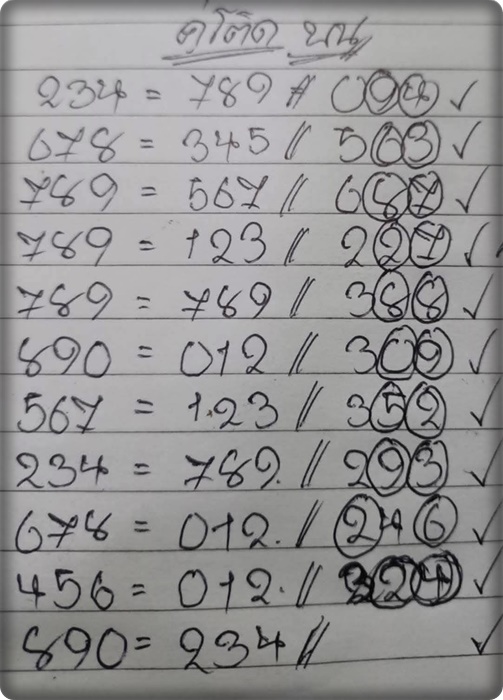 คู่โต๊ด บน
234 = 789 // 094 ✓
678 = 345 // 563 ✓
789 = 567 // 687 ✓
789 = 123 // 227 ✓
789 = 789 // 388 ✓
890 = 012 // 309 ✓
567 = 1.23 // 352 ✓
234 = 789. // 293 ✓
678 = 012. // 246 ✓
456 = 012. // 324 ✓
890 = 234 // ✓